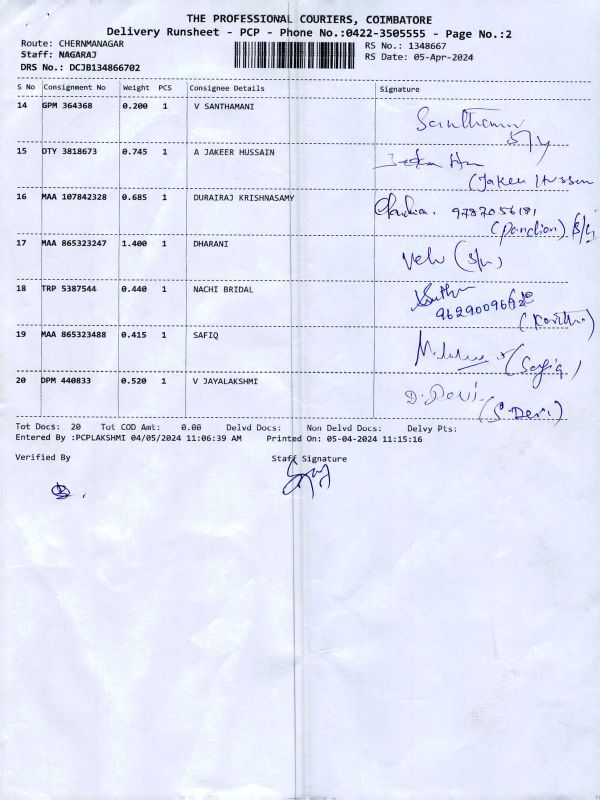 THE PROFESSIONAL COURIERS, COIMBATORE
Delivery Runsheet - PCP - Phone No.:0422-3505555 - Page No.:2
Route: CHERNMANAGAR RS No.: 1348667
Staff: NAGARAJ RS Date: 05-Apr-2024
DRS No.: DCJB134866702
S No Consignment No Weight PCS Consignee Details Signature
14 GPM 364368 0.200 1 V SANTHAMANI
Santhamani
15 DTY 3818673 0.745 1 A JAKEER HUSSAIN
(Jakeer Hussain
16 MAA 107842328 0.685 1 DURAIRAJ KRISHNASAMY
9787056181
(Pandian)
17 MAA 865323247 1.400 1 DHARANI
Velu
18 TRP 5387544 0.440 1 NACHI BRIDAL
(Kavitha)
19 MAA 865323488 0.415 1 SAFIQ
(Safiq)
20 DPM 440833 0.520 1 V JAYALAKSHMI
D. Devi.
(S. Devi)
Tot Docs: 20 Tot COD Amt: 0.00 Delvd Docs: Non Delvd Docs: Delvy Pts:
Entered By :PCPLAKSHMI 04/05/2024 11:06:39 AM Printed On: 05-04-2024 11:15:16
Verified By Staff Signature